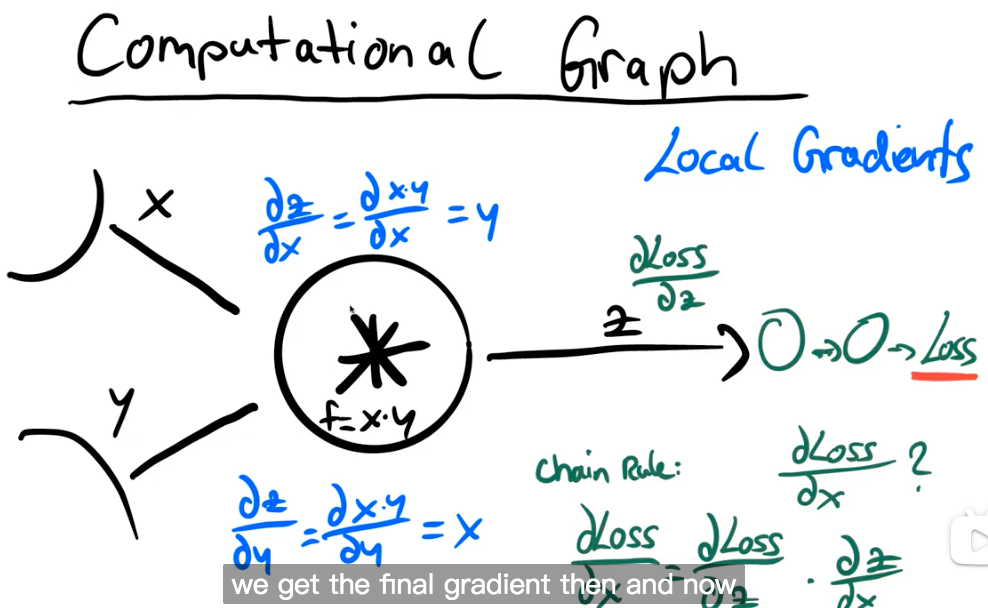 Computational Graph
Local Gradients
x
∂z/∂x = ∂x·y/∂x = y
∂Loss/∂z
z
→ Loss
*
f=x·y
y
Chain Rule:
∂Loss/∂x ?
∂z/∂y = ∂x·y/∂y = x
∂Loss/∂x = ∂Loss/∂z · ∂z/∂x
we get the final gradient then and now